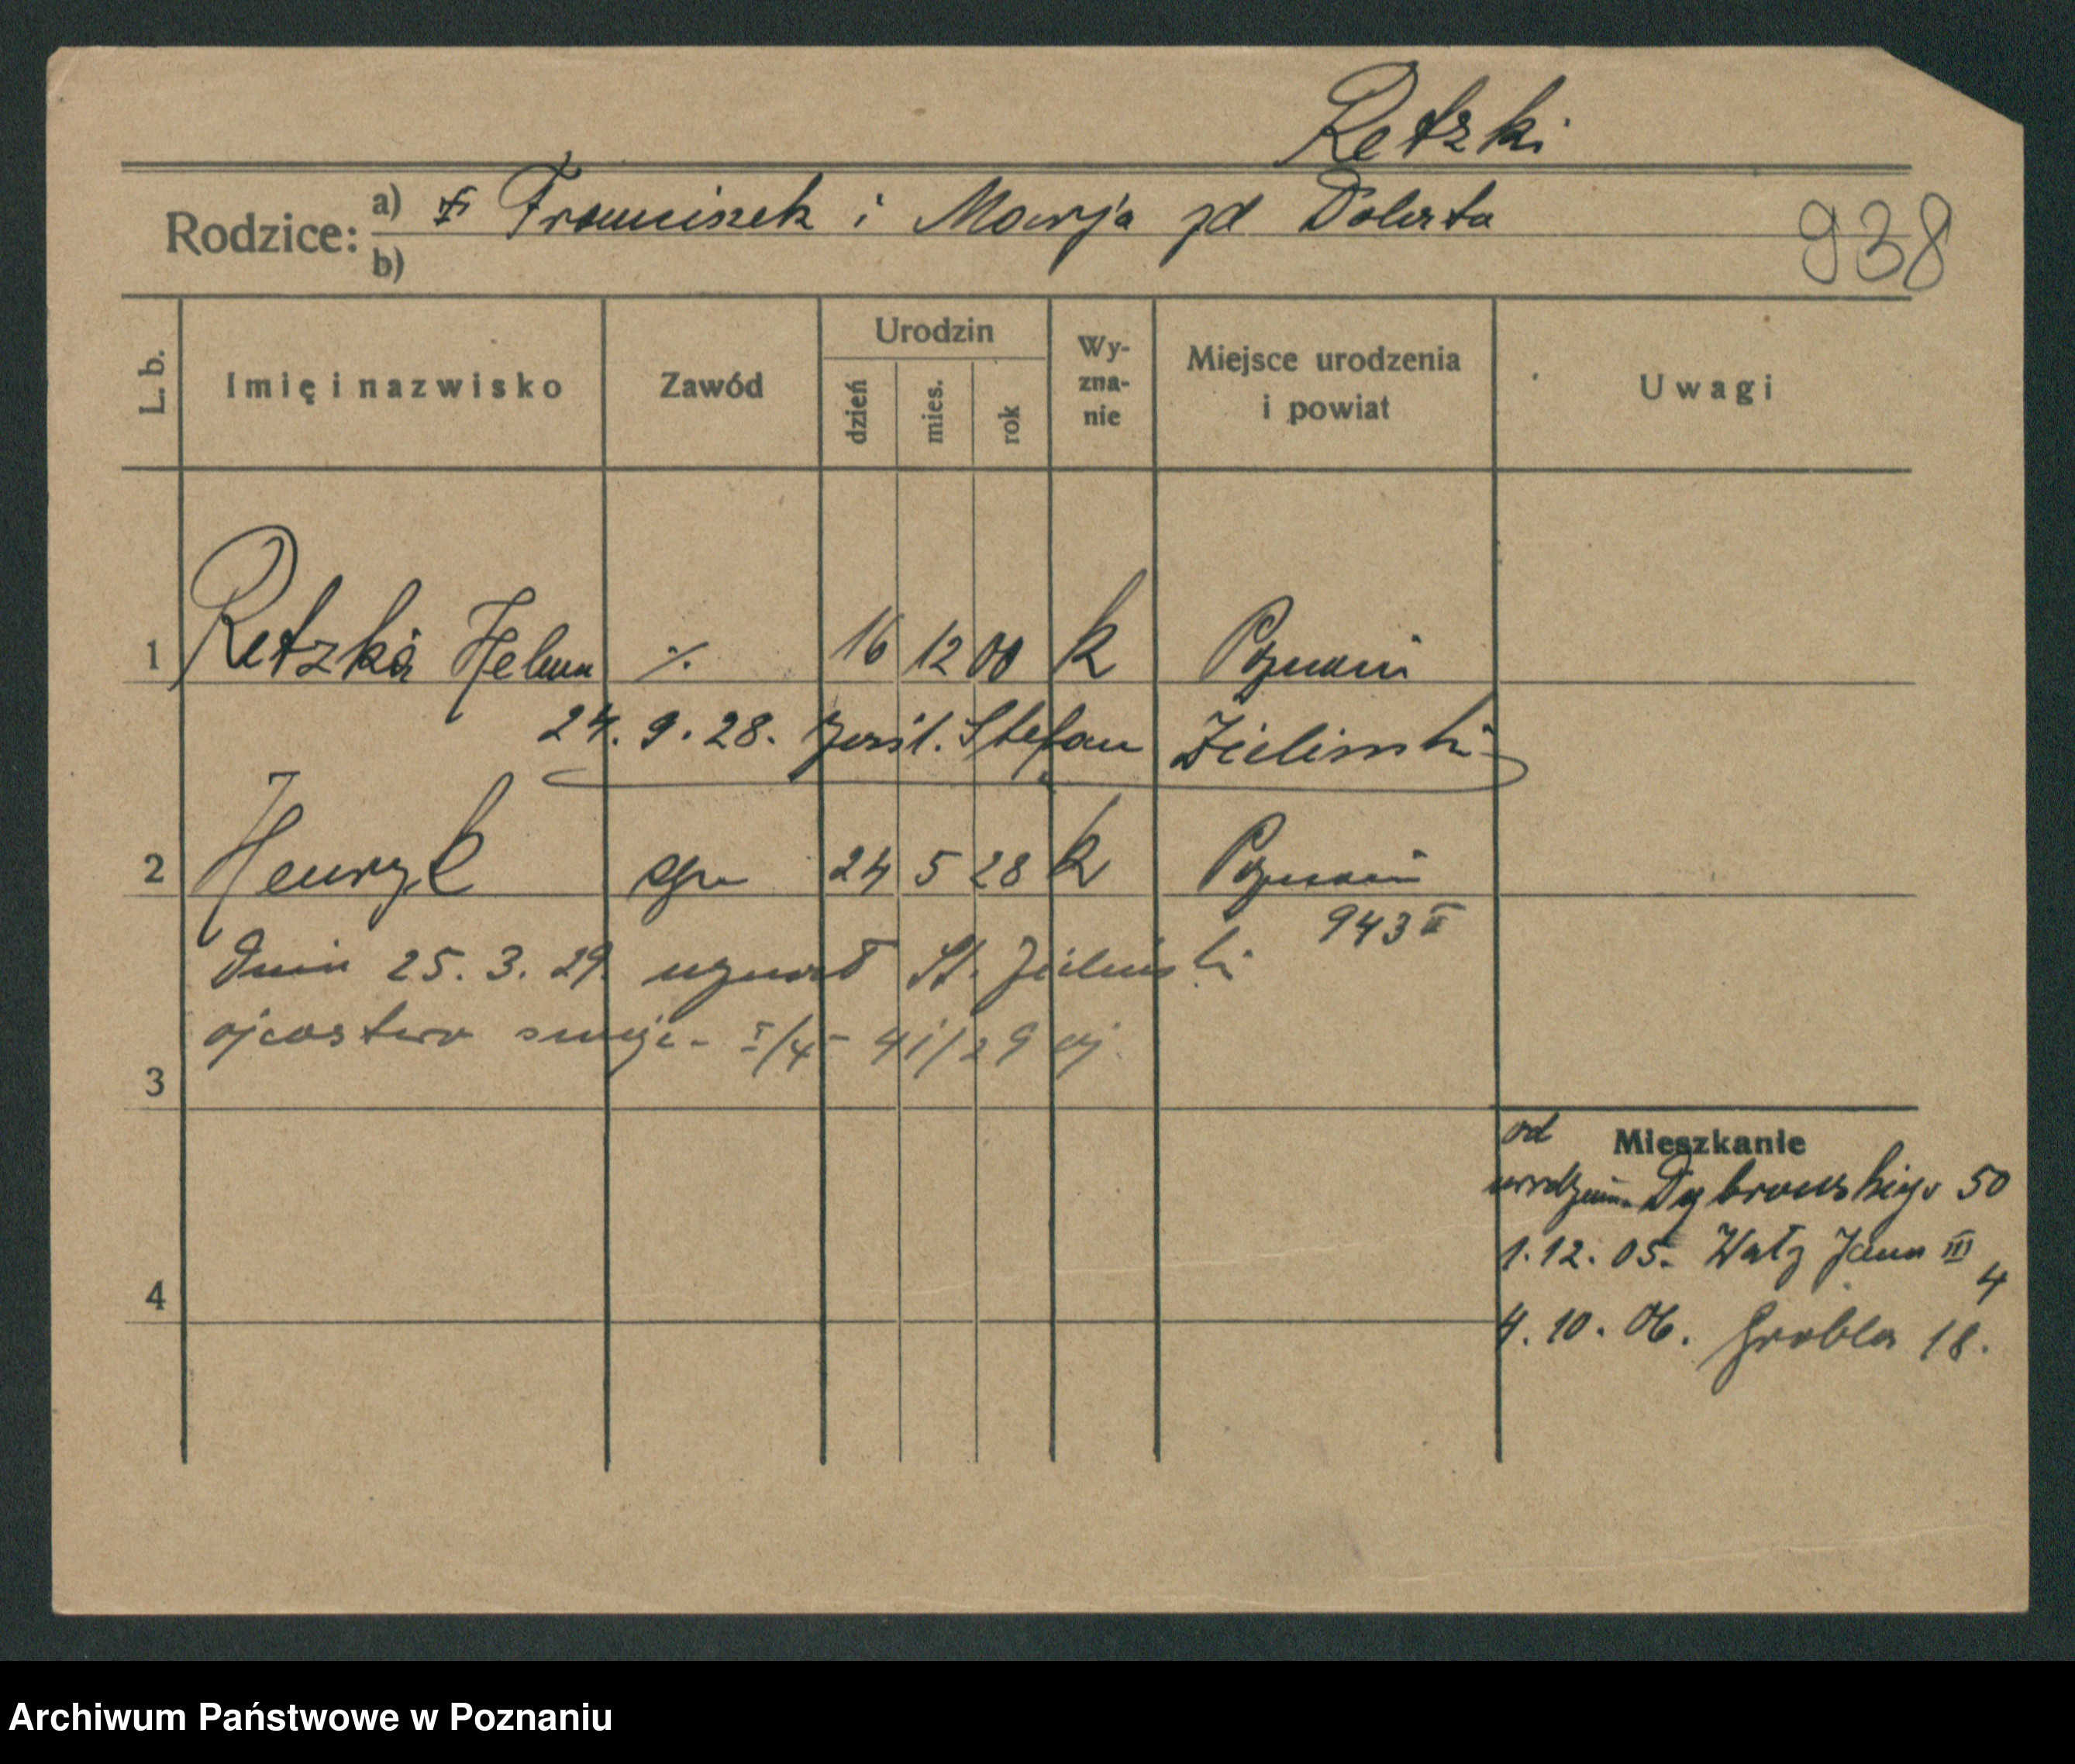 Retzki
Rodzice: a) Franciszek i Marja zd Dolata
b)
938
L. b. Imię i nazwisko Zawód Urodzin dzień mies. rok Wy-zna-nie Miejsce urodzenia i powiat Uwagi
1 Retzka Helena ./. 16 12 00 k Poznań
24. 9. 28. Stefan Zielinski
2 Henryk 24 5 28 k Poznań
943 II
Dnia 25. 3. 29. uznał St. Zieliński
ojcostwo swoje - I/4 - 41/29
3
4
od Mieszkanie
urodzenia Dąbrowskiego 50
1. 12. 05. Wały Jana III 4
4. 10. 06. Grobla 18.
Archiwum Państwowe w Poznaniu